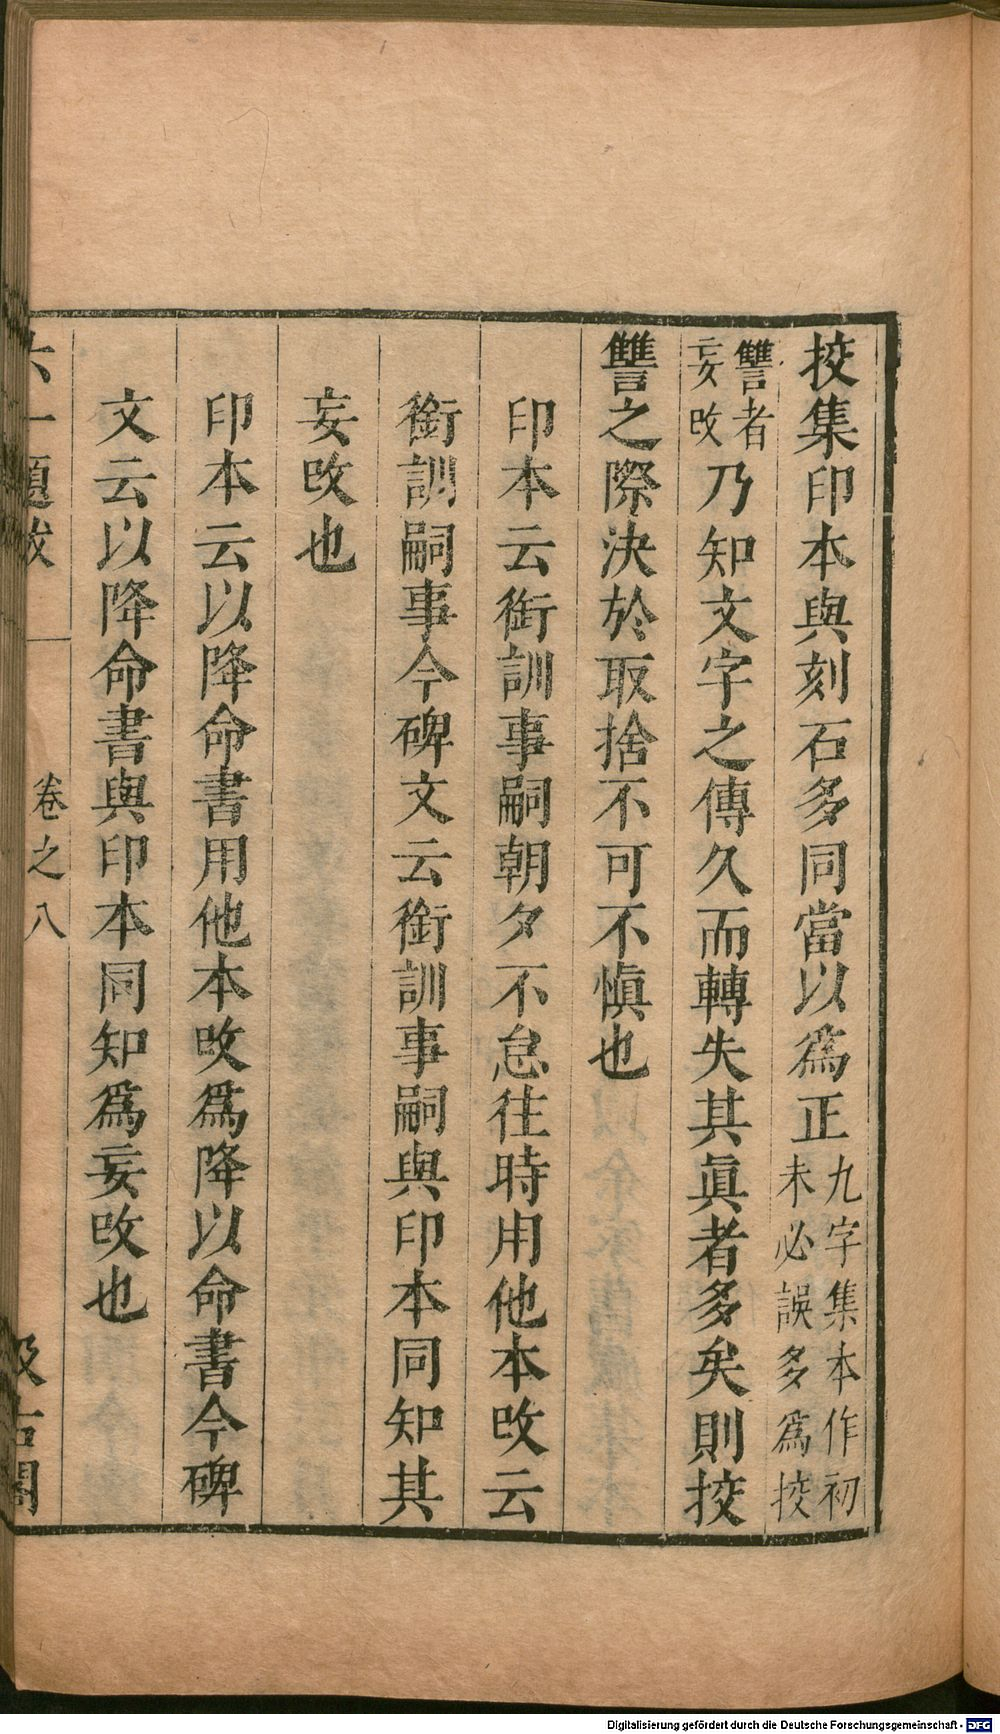 挍集印本與刻石多同當以爲正九字集本作初未必誤多爲挍
讐者妄改乃知文字之傳久而轉失其眞者多矣則挍
讐之際決於取捨不可不愼也
印本云銜訓事嗣朝夕不怠往時用他本改云
銜訓嗣事今碑文云銜訓事嗣與印本同知其
妄改也
印本云以降命書用他本改爲降以命書今碑
文云以降命書與印本同知爲妄改也
六一題跋
卷之八
汲古閣
Digitalisierung gefördert durch die Deutsche Forschungsgemeinschaft - DFG